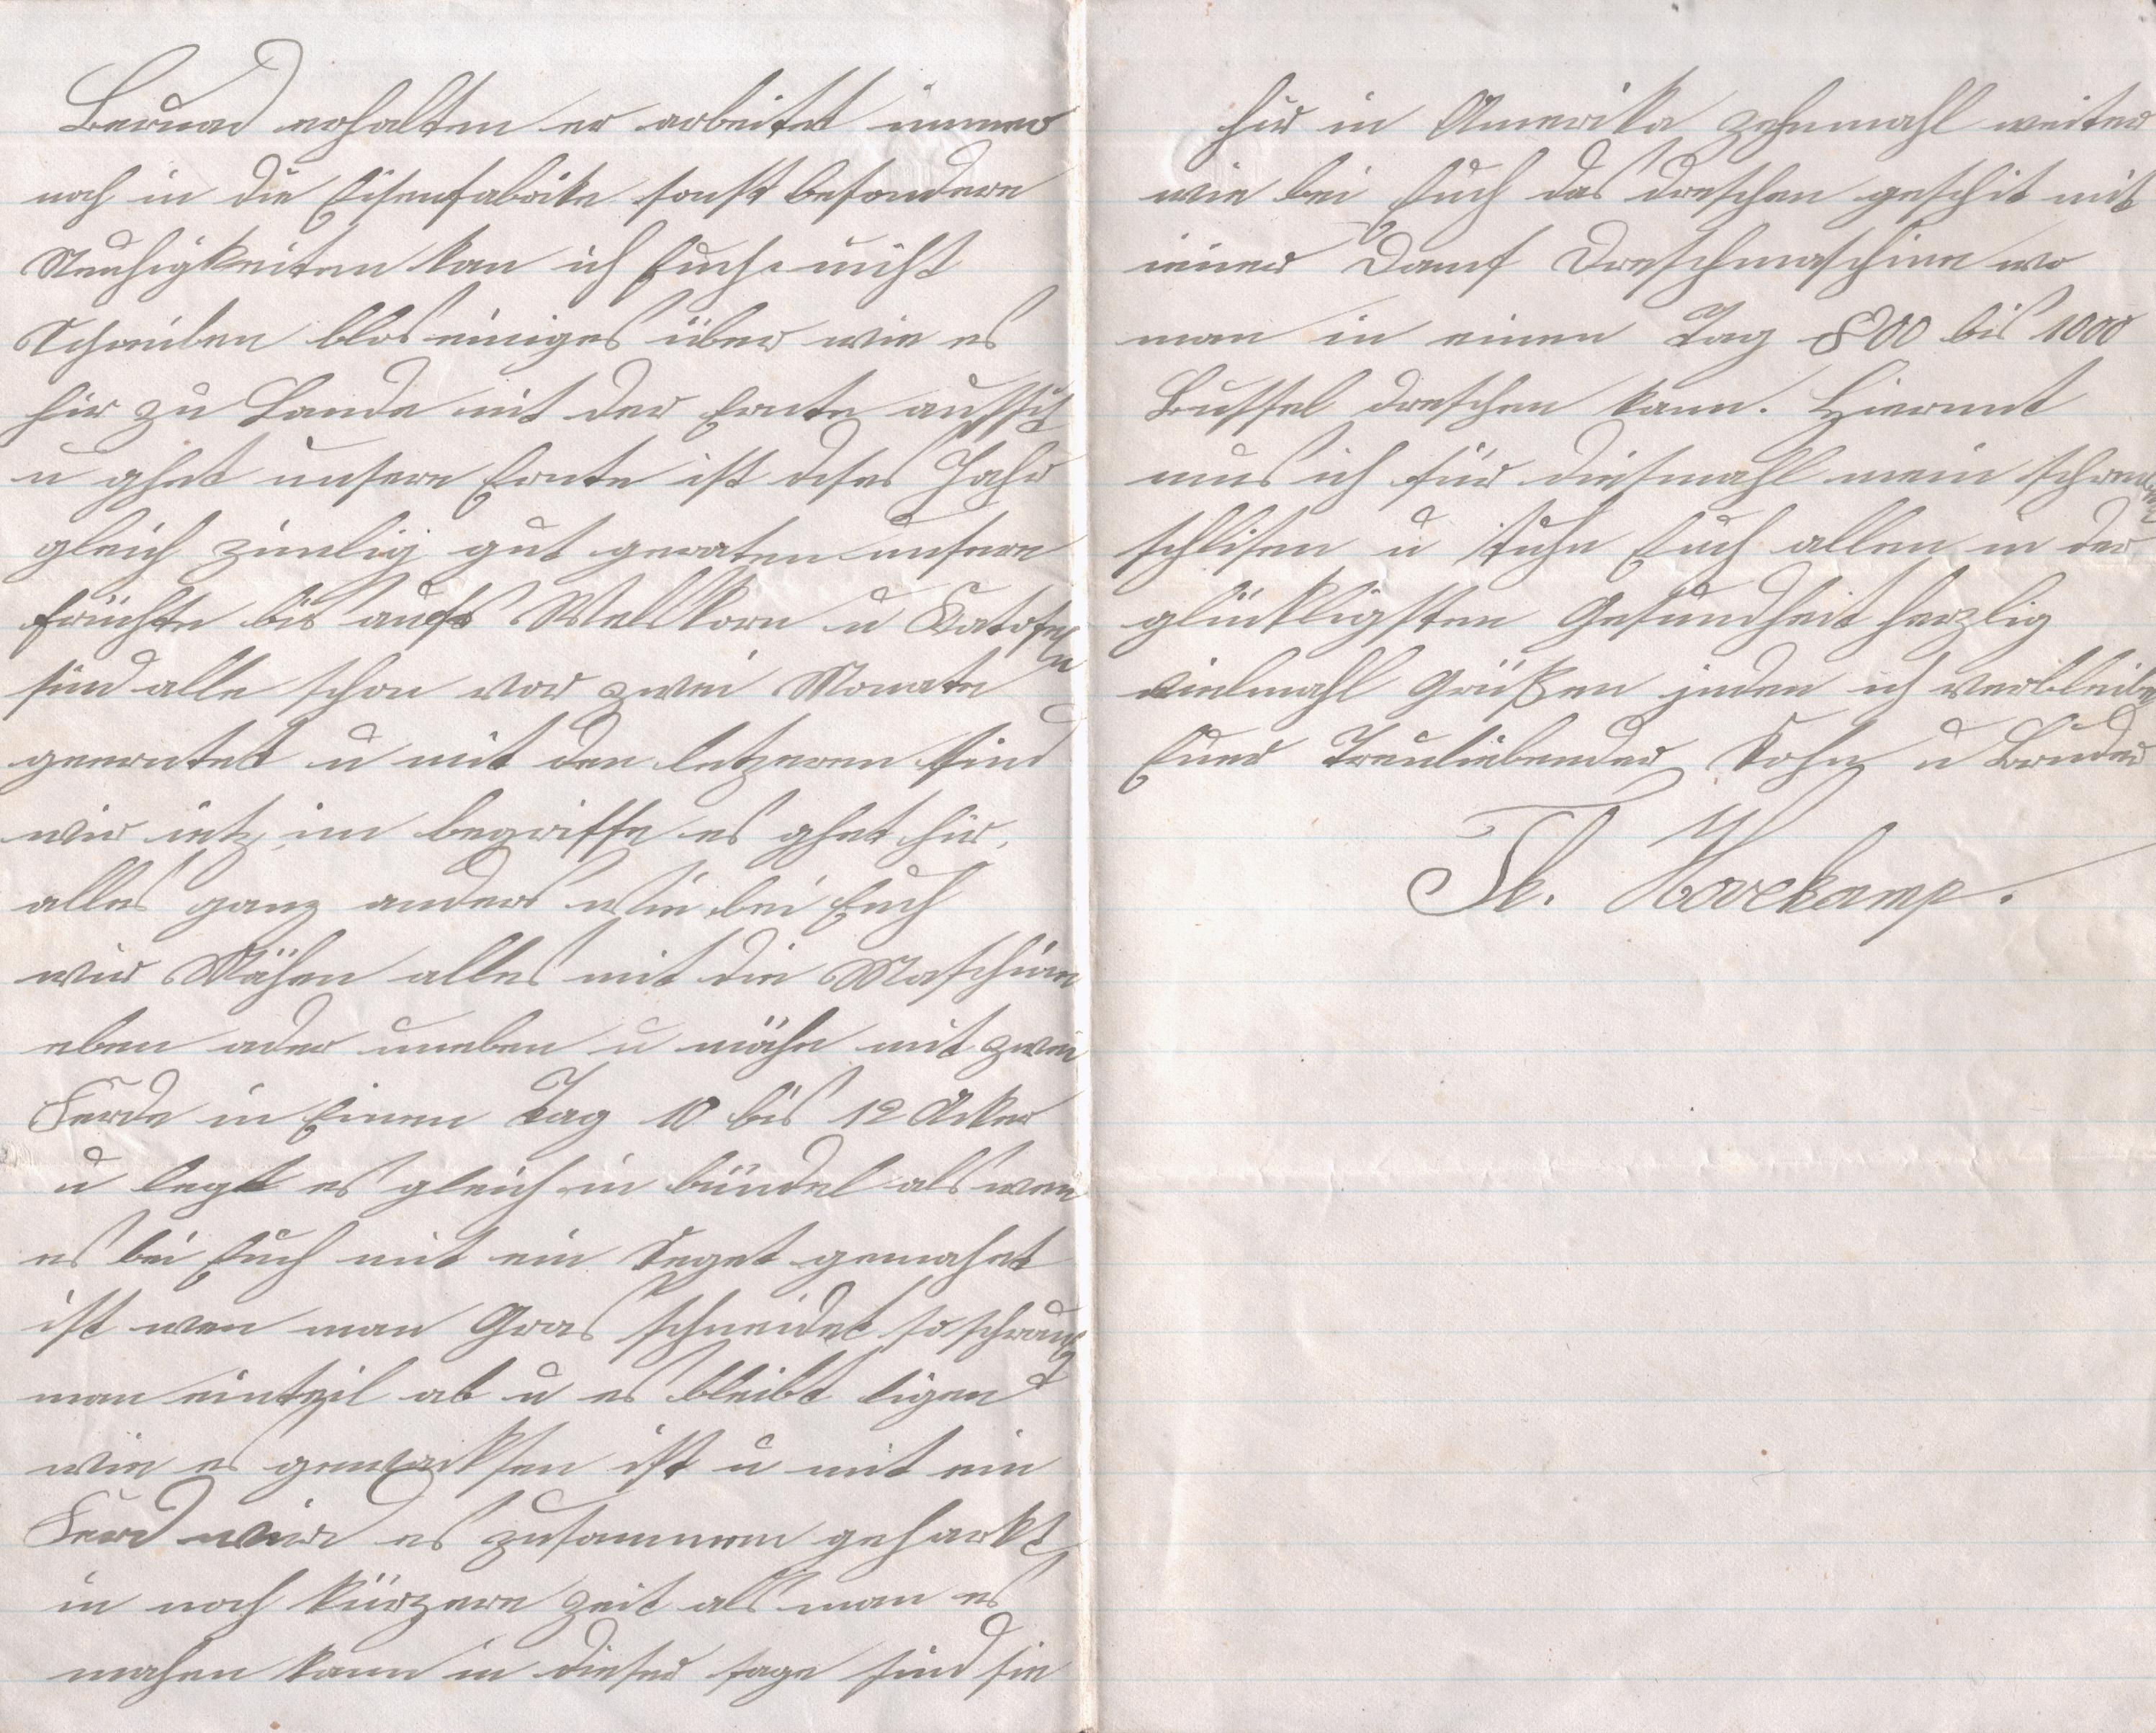 Bernad erhalten er arbeitet immer
noch in die Eisenfabrike sonst besondere
Neuhigkeiten kan ich Euch nicht
Schreiben blos einiges über wie es
hir zu Lande mit der Ernte aussit
u ghet unsere Ernte ist dises Jahr
gleich zimlig gut geraten unsere
früchte bis aufs Welskorn u Katofeln
sind alle schon vor zwei Monate
geerntet u mit den letzeren sind
wir jetz im begriffe es ghet hir,
alles ganz anders wie bei Euch
wir Mähen alles mit die Maschine
eben oder uneben u mähe mit zwei
Ferde in Einen Tag 10 bis 12 Acker
u legt es gleich in bündel als wen
es bei Euch mit ein Seget gemahet
ist wen man Gras schneidet so schraubt
man einteil ab u es bleibt ligen
wie es gewacksen ist u mit ein
Ferd wird es zusammen geharkt
in noch kürzere zeit als man es
mahen kann in dieser sage sind sie
hir in Amerika zehnmahl weiter
wie bei Euch das dreschen geschit mit
einer Damf Dreschmaschine wo
man in einen Tag 800 bis 1000
Bussel dreschen kann. Hiermit
mus ich für diesmahl mein schreiben
schlisen u tuhe Euch allen in der
glückligsten Gesundheit herzlig
vielmahl Grüßen inden ich verbleibe
Euer Treuliebender Sohn u Bruder
Th. Horekamp.